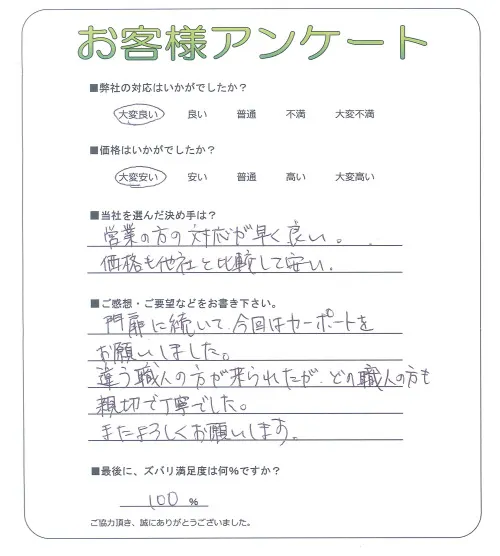 お客様アンケート
■弊社の対応はいかがでしたか？
大変良い 良い 普通 不満 大変不満
■価格はいかがでしたか？
大変安い 安い 普通 高い 大変高い
■当社を選んだ決め手は？
営業の方の対応が早く良い。
価格も他社と比較して安い.
■ご感想・ご要望などをお書き下さい。
門扉に続いて、今回はカーポートを
お願いしました。
違う職人の方が来られたが、どの職人の方も
親切で丁寧でした。
またよろしくお願いします。
■最後に、ズバリ満足度は何％ですか？
100 %
ご協力頂き、誠にありがとうございました。